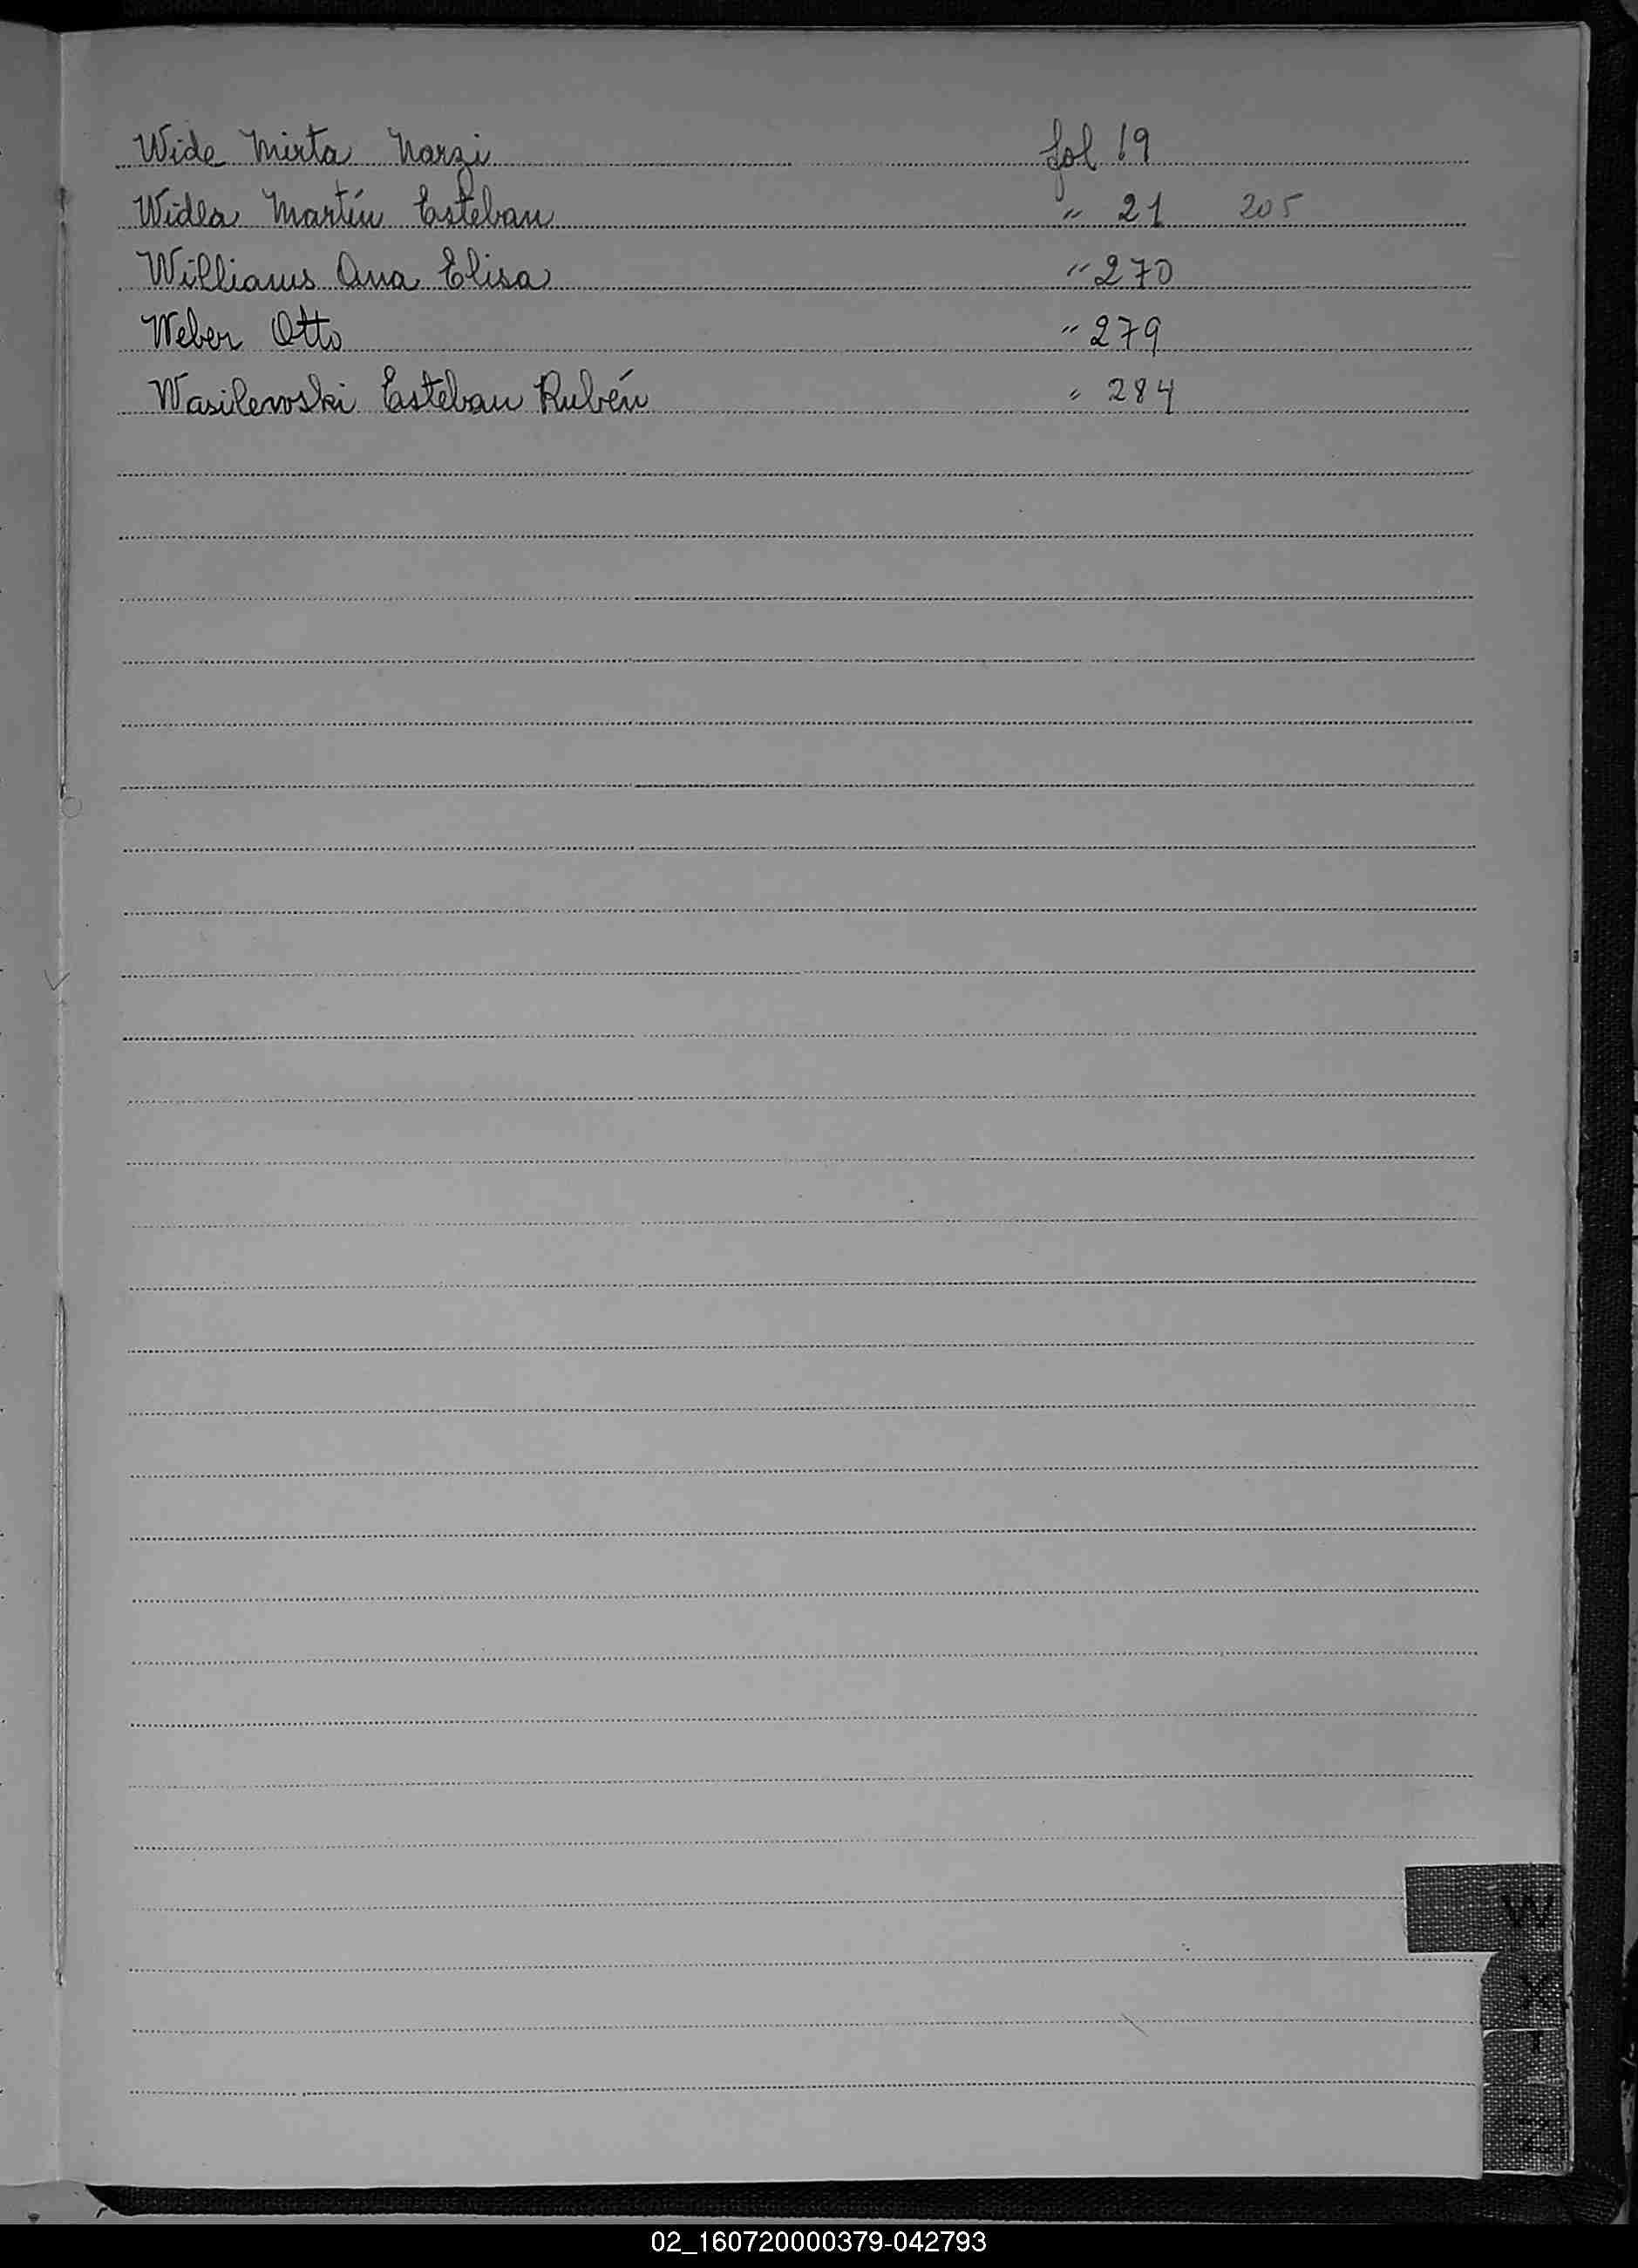 Wide Mirta Narzi fol 19
Widla Martín Esteban " 21 205
Williams Ana Elisa " 270
Weber Otto " 279
Wasilewski Esteban Rubén " 284
W
X
Y
Z
02_160720000379-042793